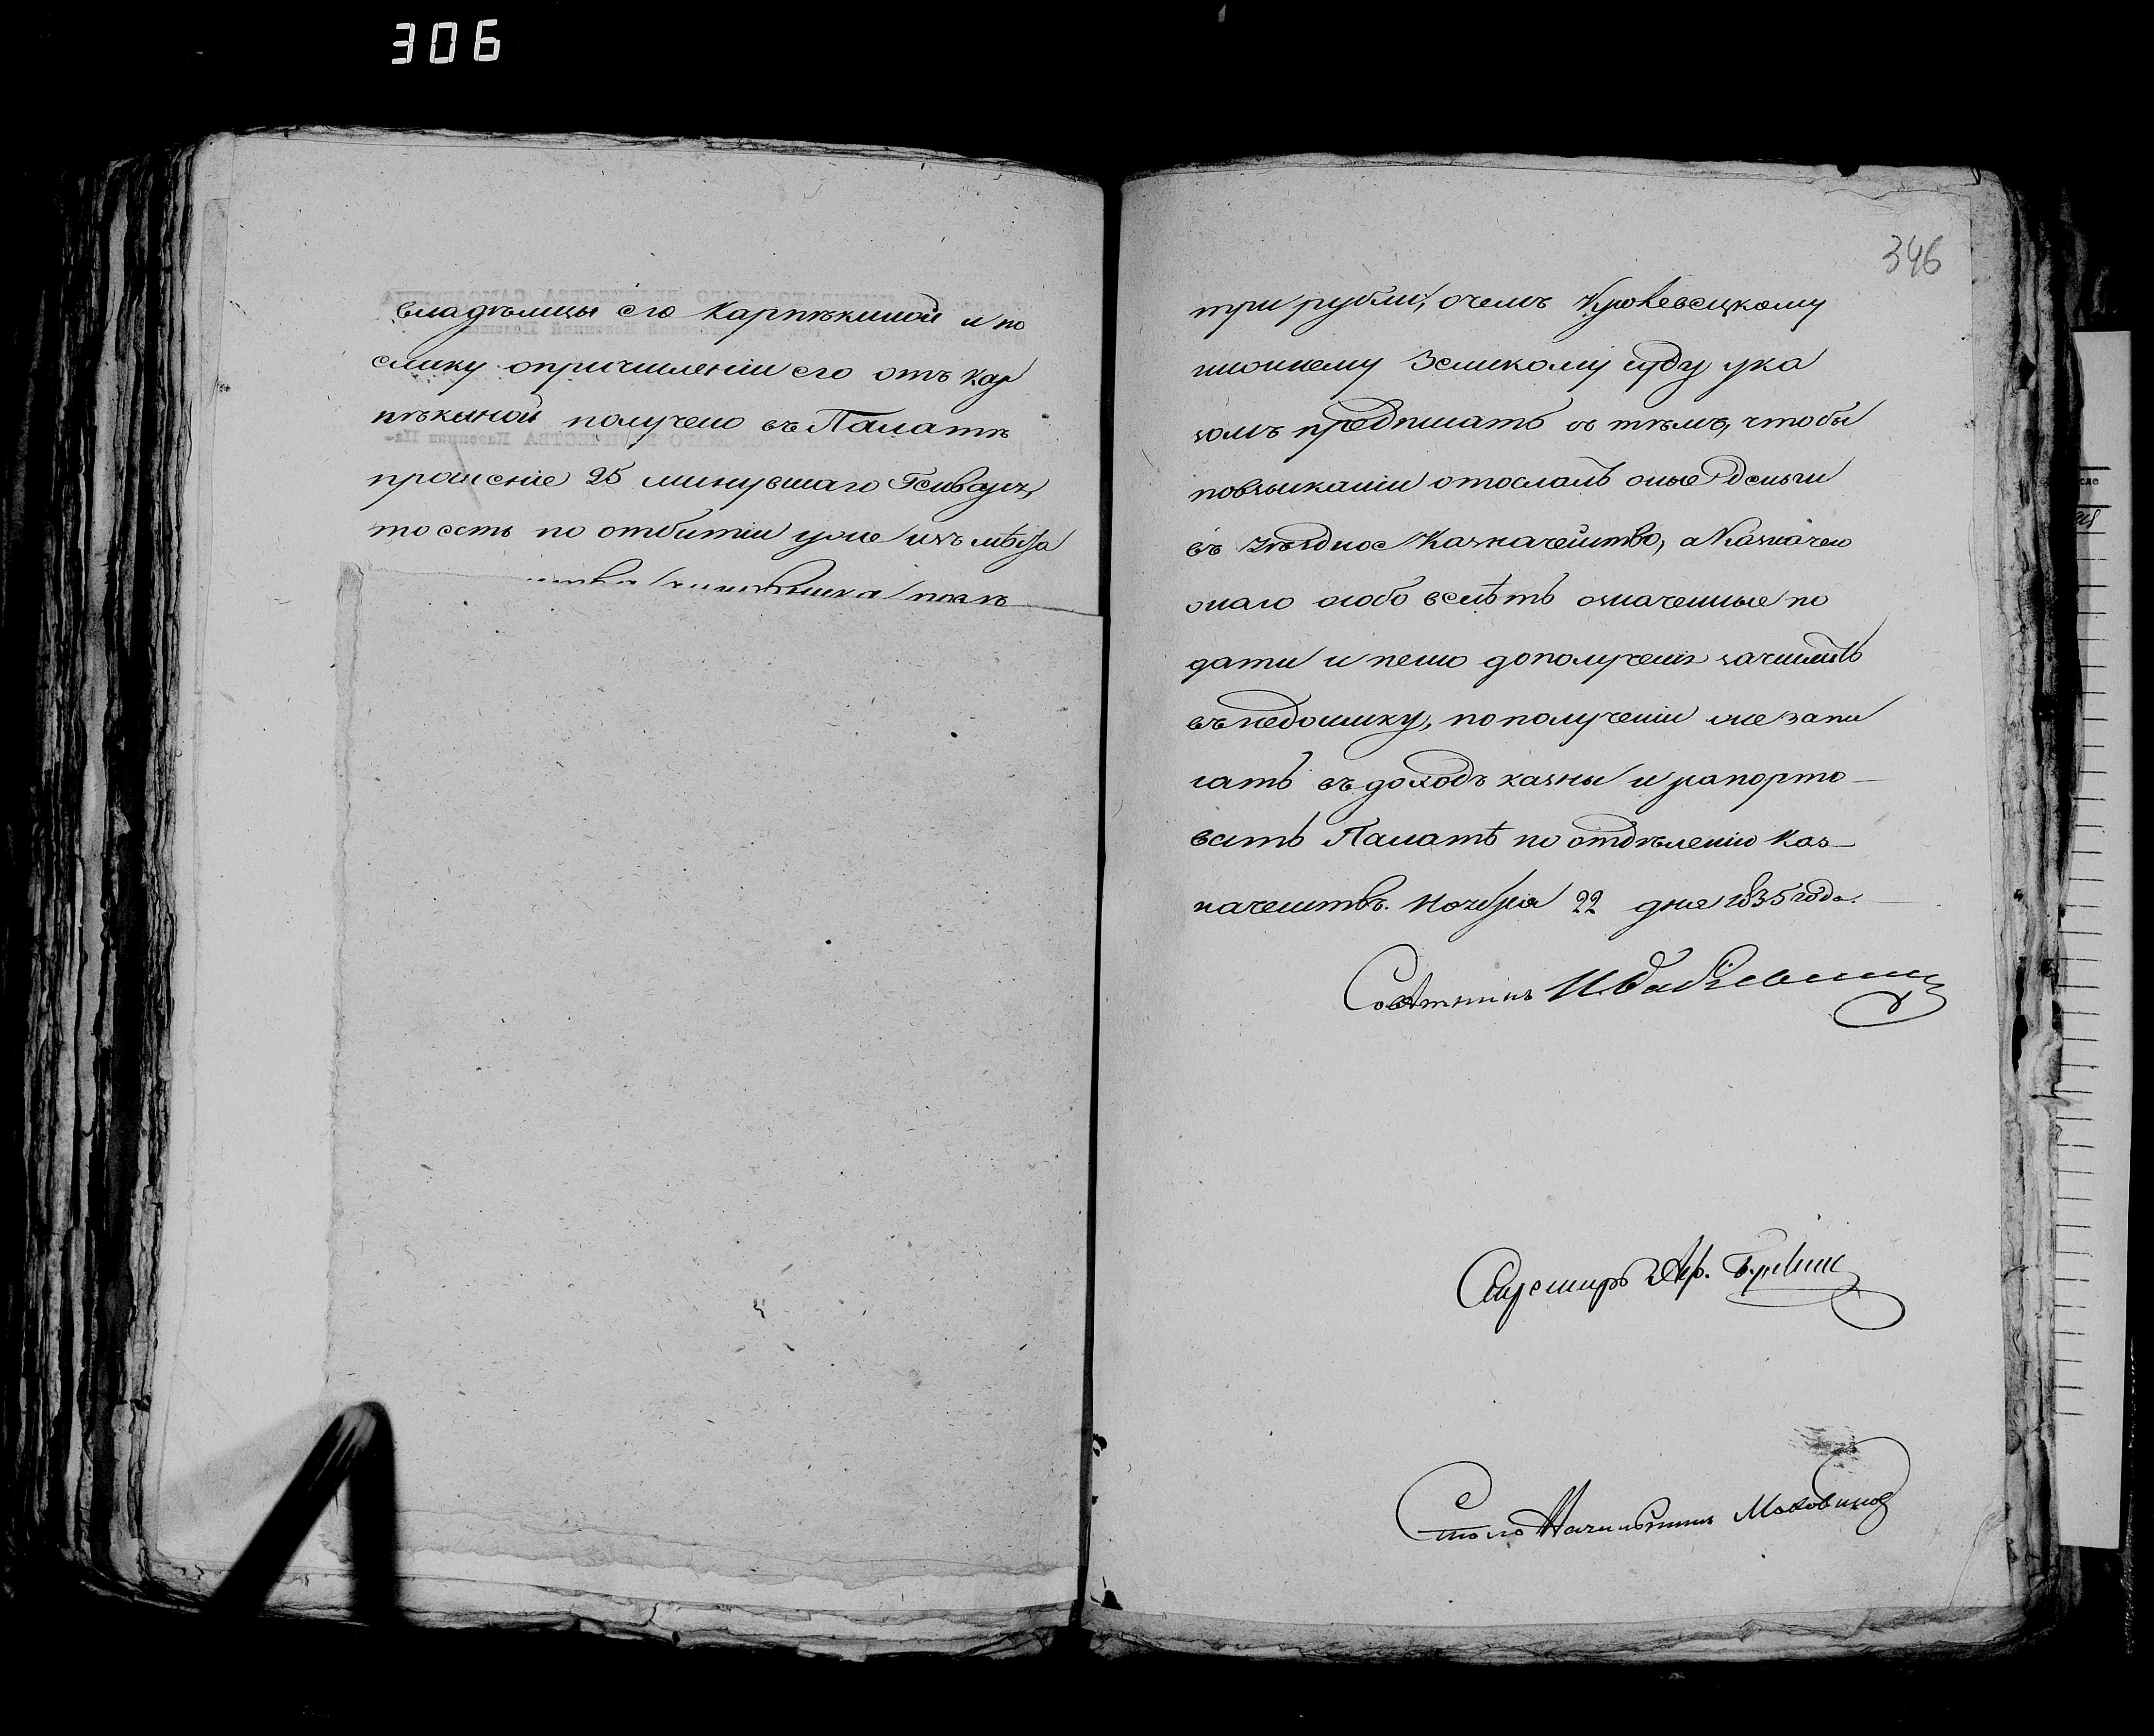 306
владѣлицы его Карпѣкиной и по
елику опричислении его отъ Кар
пѣкиной получено въ Палатѣ
прошение 25 минувшаго Генваря,
то есть по отбытии уже
346
три рубли, о чемъ Кролевецкому
нижнему Земскому суду ука
зомъ предписать съ тѣмъ, чтобы
повзыскании отослалъ оные деньги
въ уѣздное Казначейство, а Казначею
онаго особо велѣть означенные по
дати и пеню дополучения зачислить
въ недоимку, по получении же запи
сать въ доходъ казны и рапорто-
вать Палатѣ по отдѣлению Каз-
начействъ. Ноября 22 дня 1835 года.
Совѣтникъ
Столоначальникъ